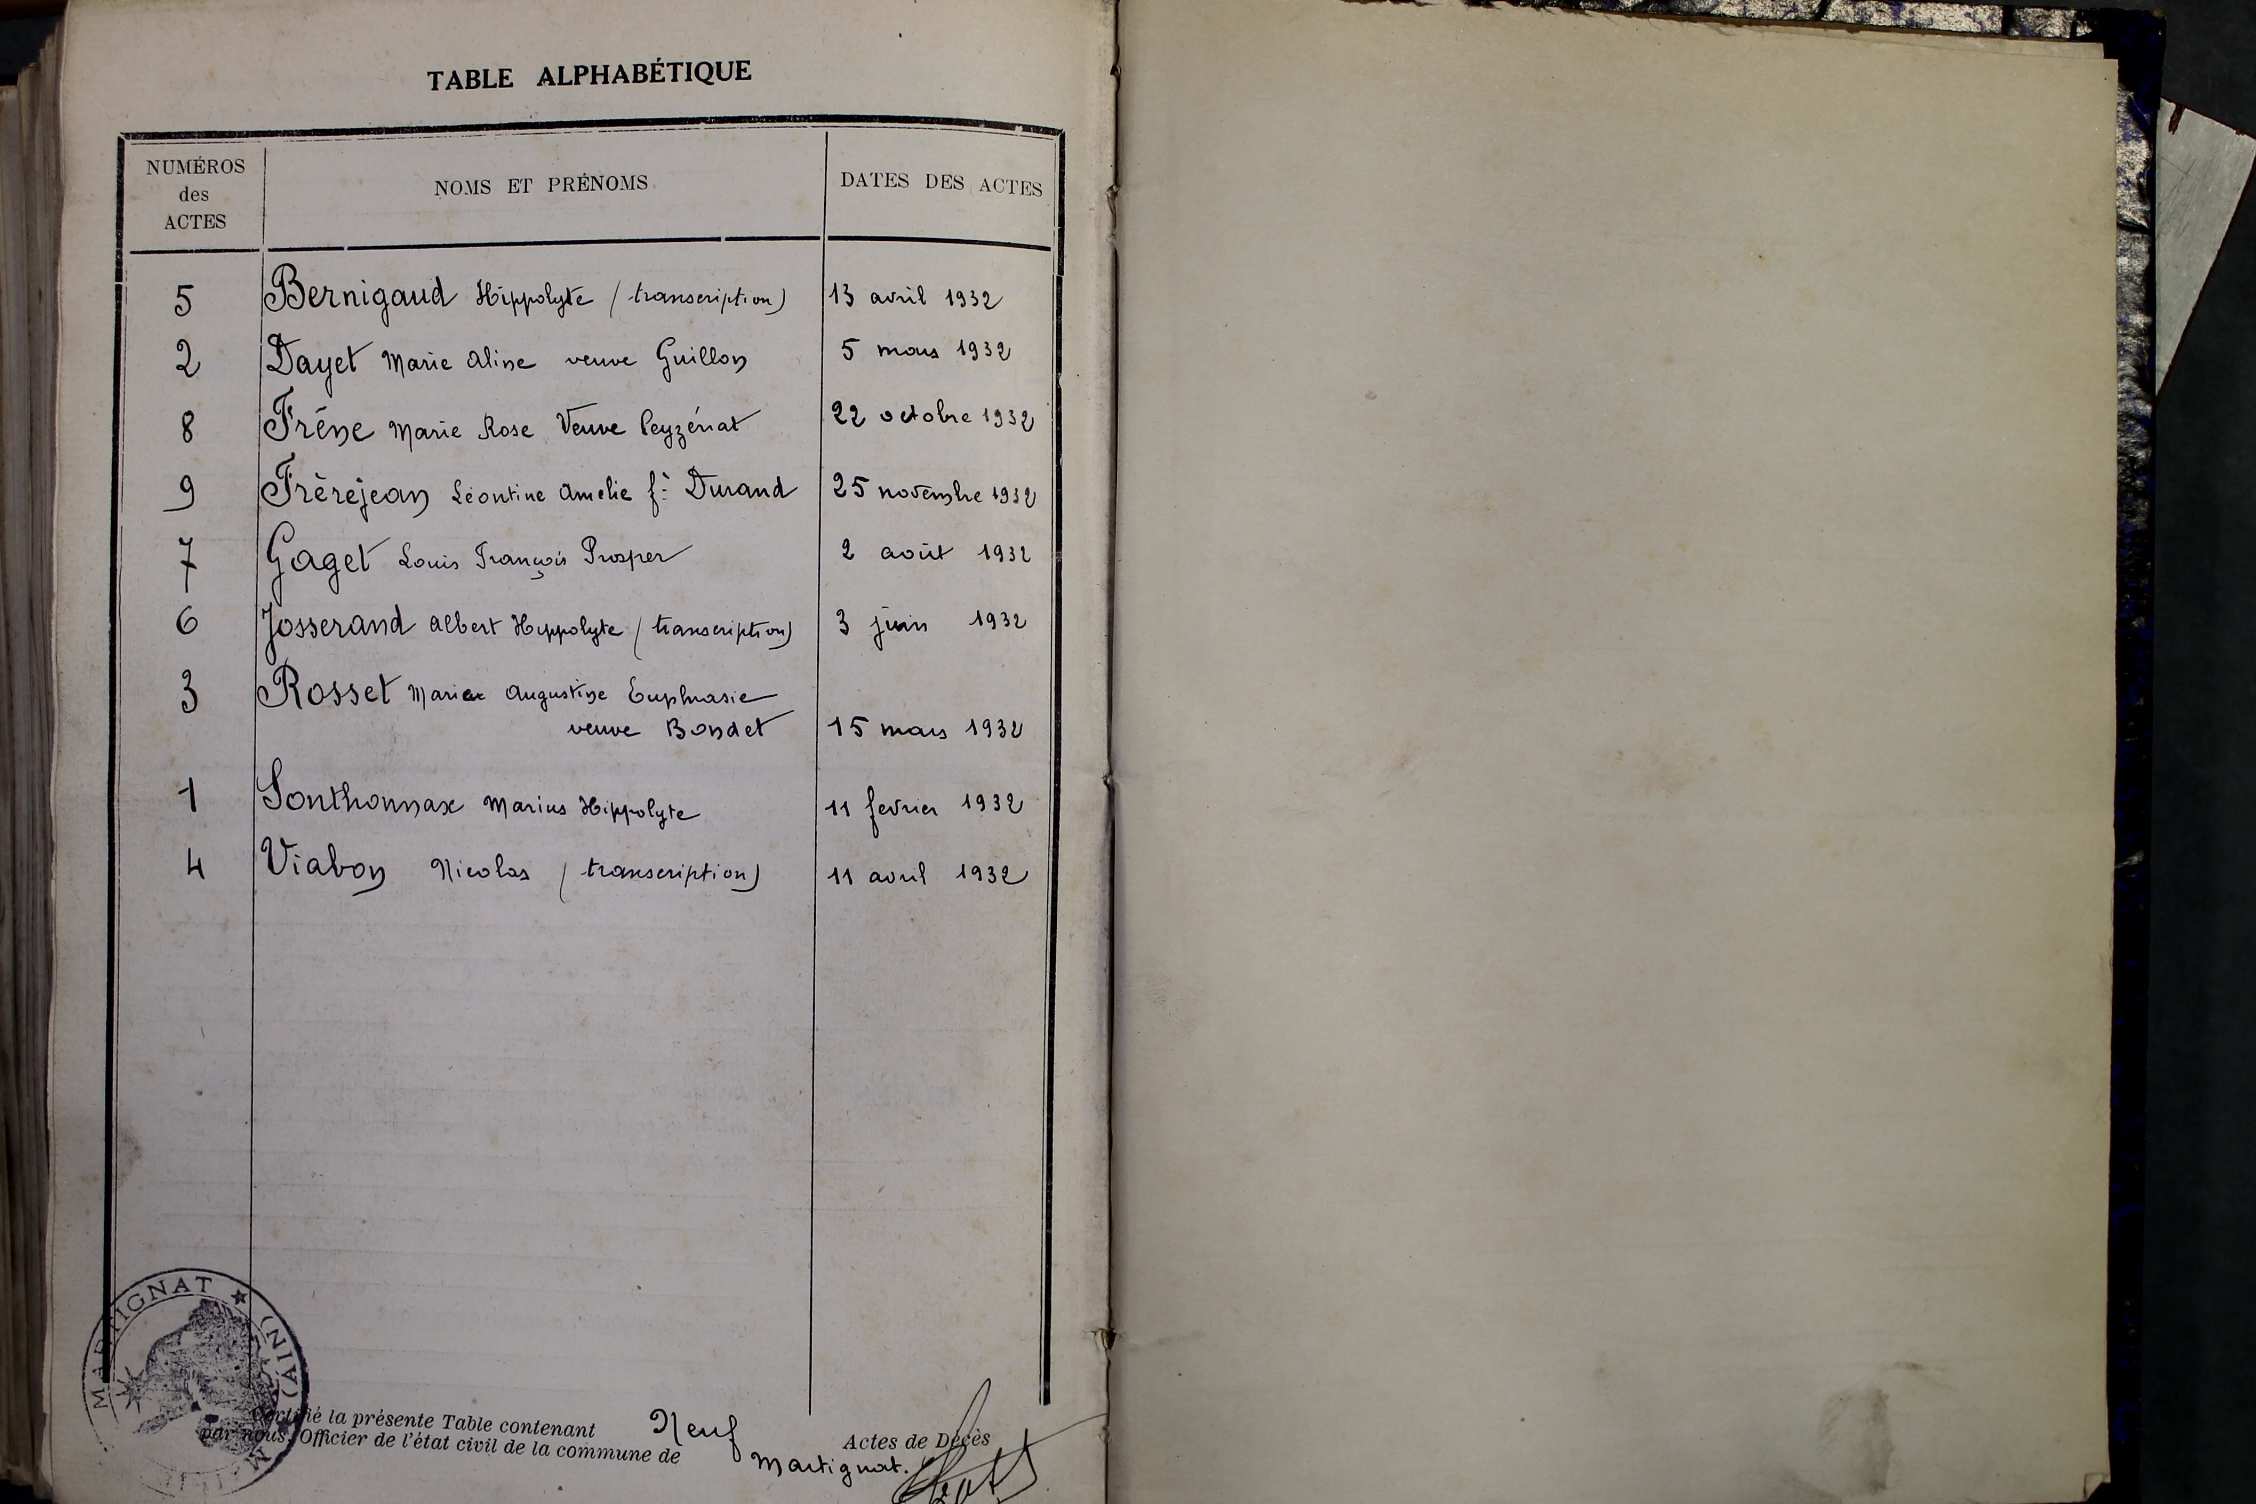 TABLE ALPHABÉTIQUE
NUMÉROS des ACTES NOMS ET PRÉNOMS DATES DES ACTES
5 Bernigaud Hippolyte (transcription) 13 avril 1932
2 Dayet Marie Aline veuve Guillon 5 mars 1932
8 Frêne Marie Rose Veuve Peyzériat 22 octobre 1932
9 Frèrejean Léontine Amelie fe Durand 25 novembre 1932
7 Gaget Louis François Prosper 2 août 1932
6 Josserand Albert Hyppolyte (transcription) 3 juin 1932
3 Rosset Marie Augustine Euphrasie
veuve Bondet 15 mars 1932
1 Sonthonnax Marius Hippolyte 11 fevrier 1932
4 Viabon Nicolas (transcription) 11 avril 1932
MARTIGNAT ★ (AIN)
Certifié la présente Table contenant Neuf Actes de Décès
par nous, Officier de l'état civil de la commune de Martignat.